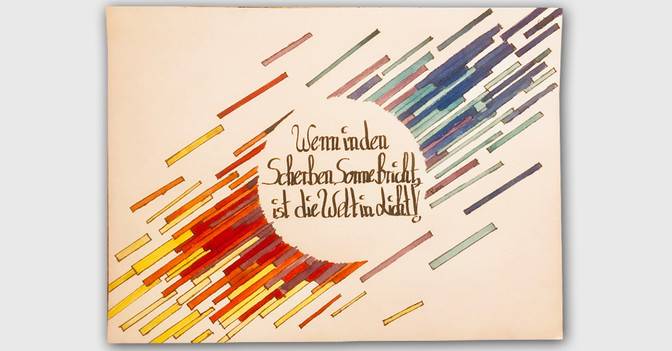 Wenn in den
Scherben Sonne bricht,
ist die Welt in Licht!